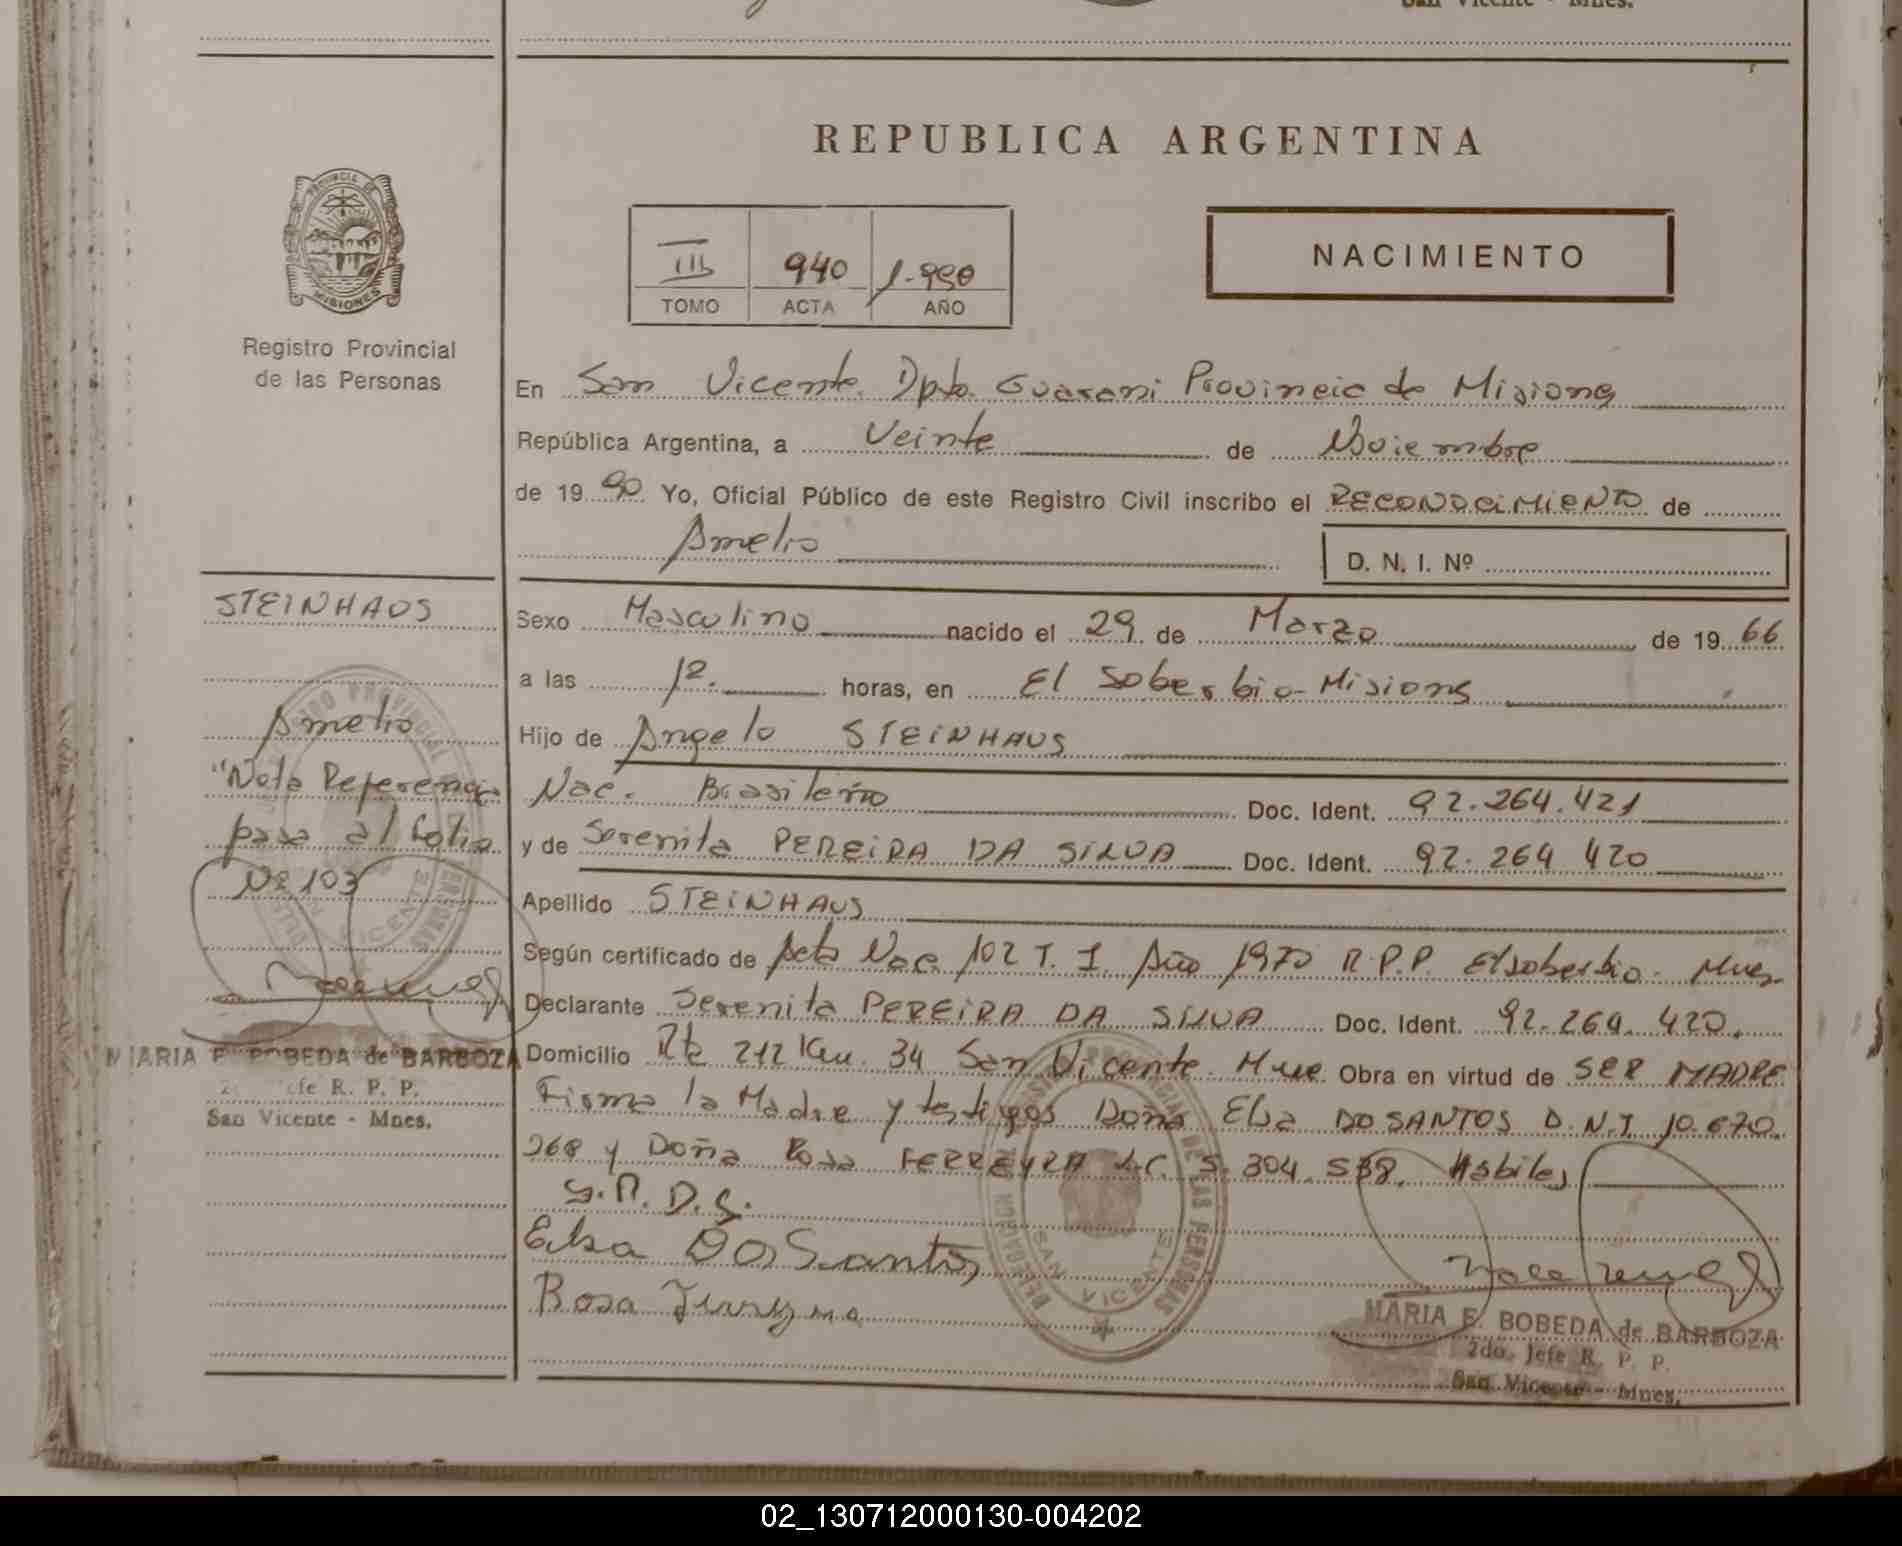 San Vicente - Mnes.
REPUBLICA ARGENTINA
PROVINCIA DE
MISIONES
Registro Provincial
de las Personas
III 940 1.990
TOMO ACTA AÑO
NACIMIENTO
En San Vicente Dpto. Guarani Provincia de Misiones
República Argentina, a Veinte de Noviembre
de 19 90 Yo, Oficial Público de este Registro Civil inscribo el RECONOCIMIENTO de
Amelio
D. N. I. Nº
STEINHAUS
Amelio
"Nota Referencia
pasa al folio
Nº 103
MARIA E BOBEDA de BARBOZA
2do Jefe R. P. P.
San Vicente - Mnes.
Sexo Masculino nacido el 29 de Marzo de 19 66
a las 12. horas, en El Soberbio - Misiones
Hijo de Angelo STEINHAUS
Nac. Brasileño Doc. Ident. 92.264.421
y de Serenita PEREIRA DA SILVA Doc. Ident. 92.264 420
Apellido STEINHAUS
Según certificado de Acta Nac. 102 T. I. Año 1970 R.P.P. El soberbio. Mnes
Declarante Serenita PEREIRA DA SILVA Doc. Ident. 92.264.420.
Domicilio Rta 212 Km. 34 San Vicente. Mnes. Obra en virtud de SER MADRE
Firma la Madre y testigos Doña Elsa DO SANTOS D.N.I 10.670.
268 y Doña Rosa FERREYRA L.C. 5.304.588. Hábiles
S.R.D.S.
Elsa Do Santos
Rosa Ferreyra
SAN VICENTE
MARIA E. BOBEDA de BARBOZA
2do. Jefe R. P. P.
San Vicente - Mnes.
02_130712000130-004202